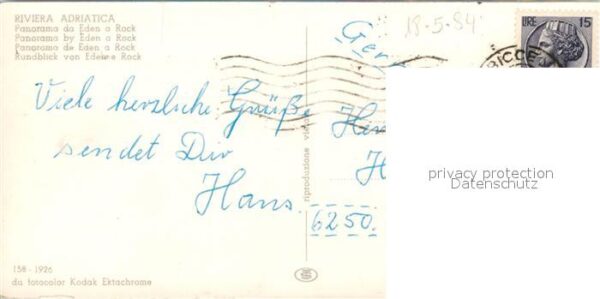 RIVIERA ADRIATICA
Panorama da Eden a Rock
Panorama by Eden a Rock
Panorama de Eden a Rock
Rundblick von Eden a Rock
18-5-54
LIRE 15
RICCE
Viele herzliche Grüße
sendet Dir
Hans.
riproduzione
6250.
privacy protection
Datenschutz
158 - 1926
da fotocolor Kodak Ektachrome